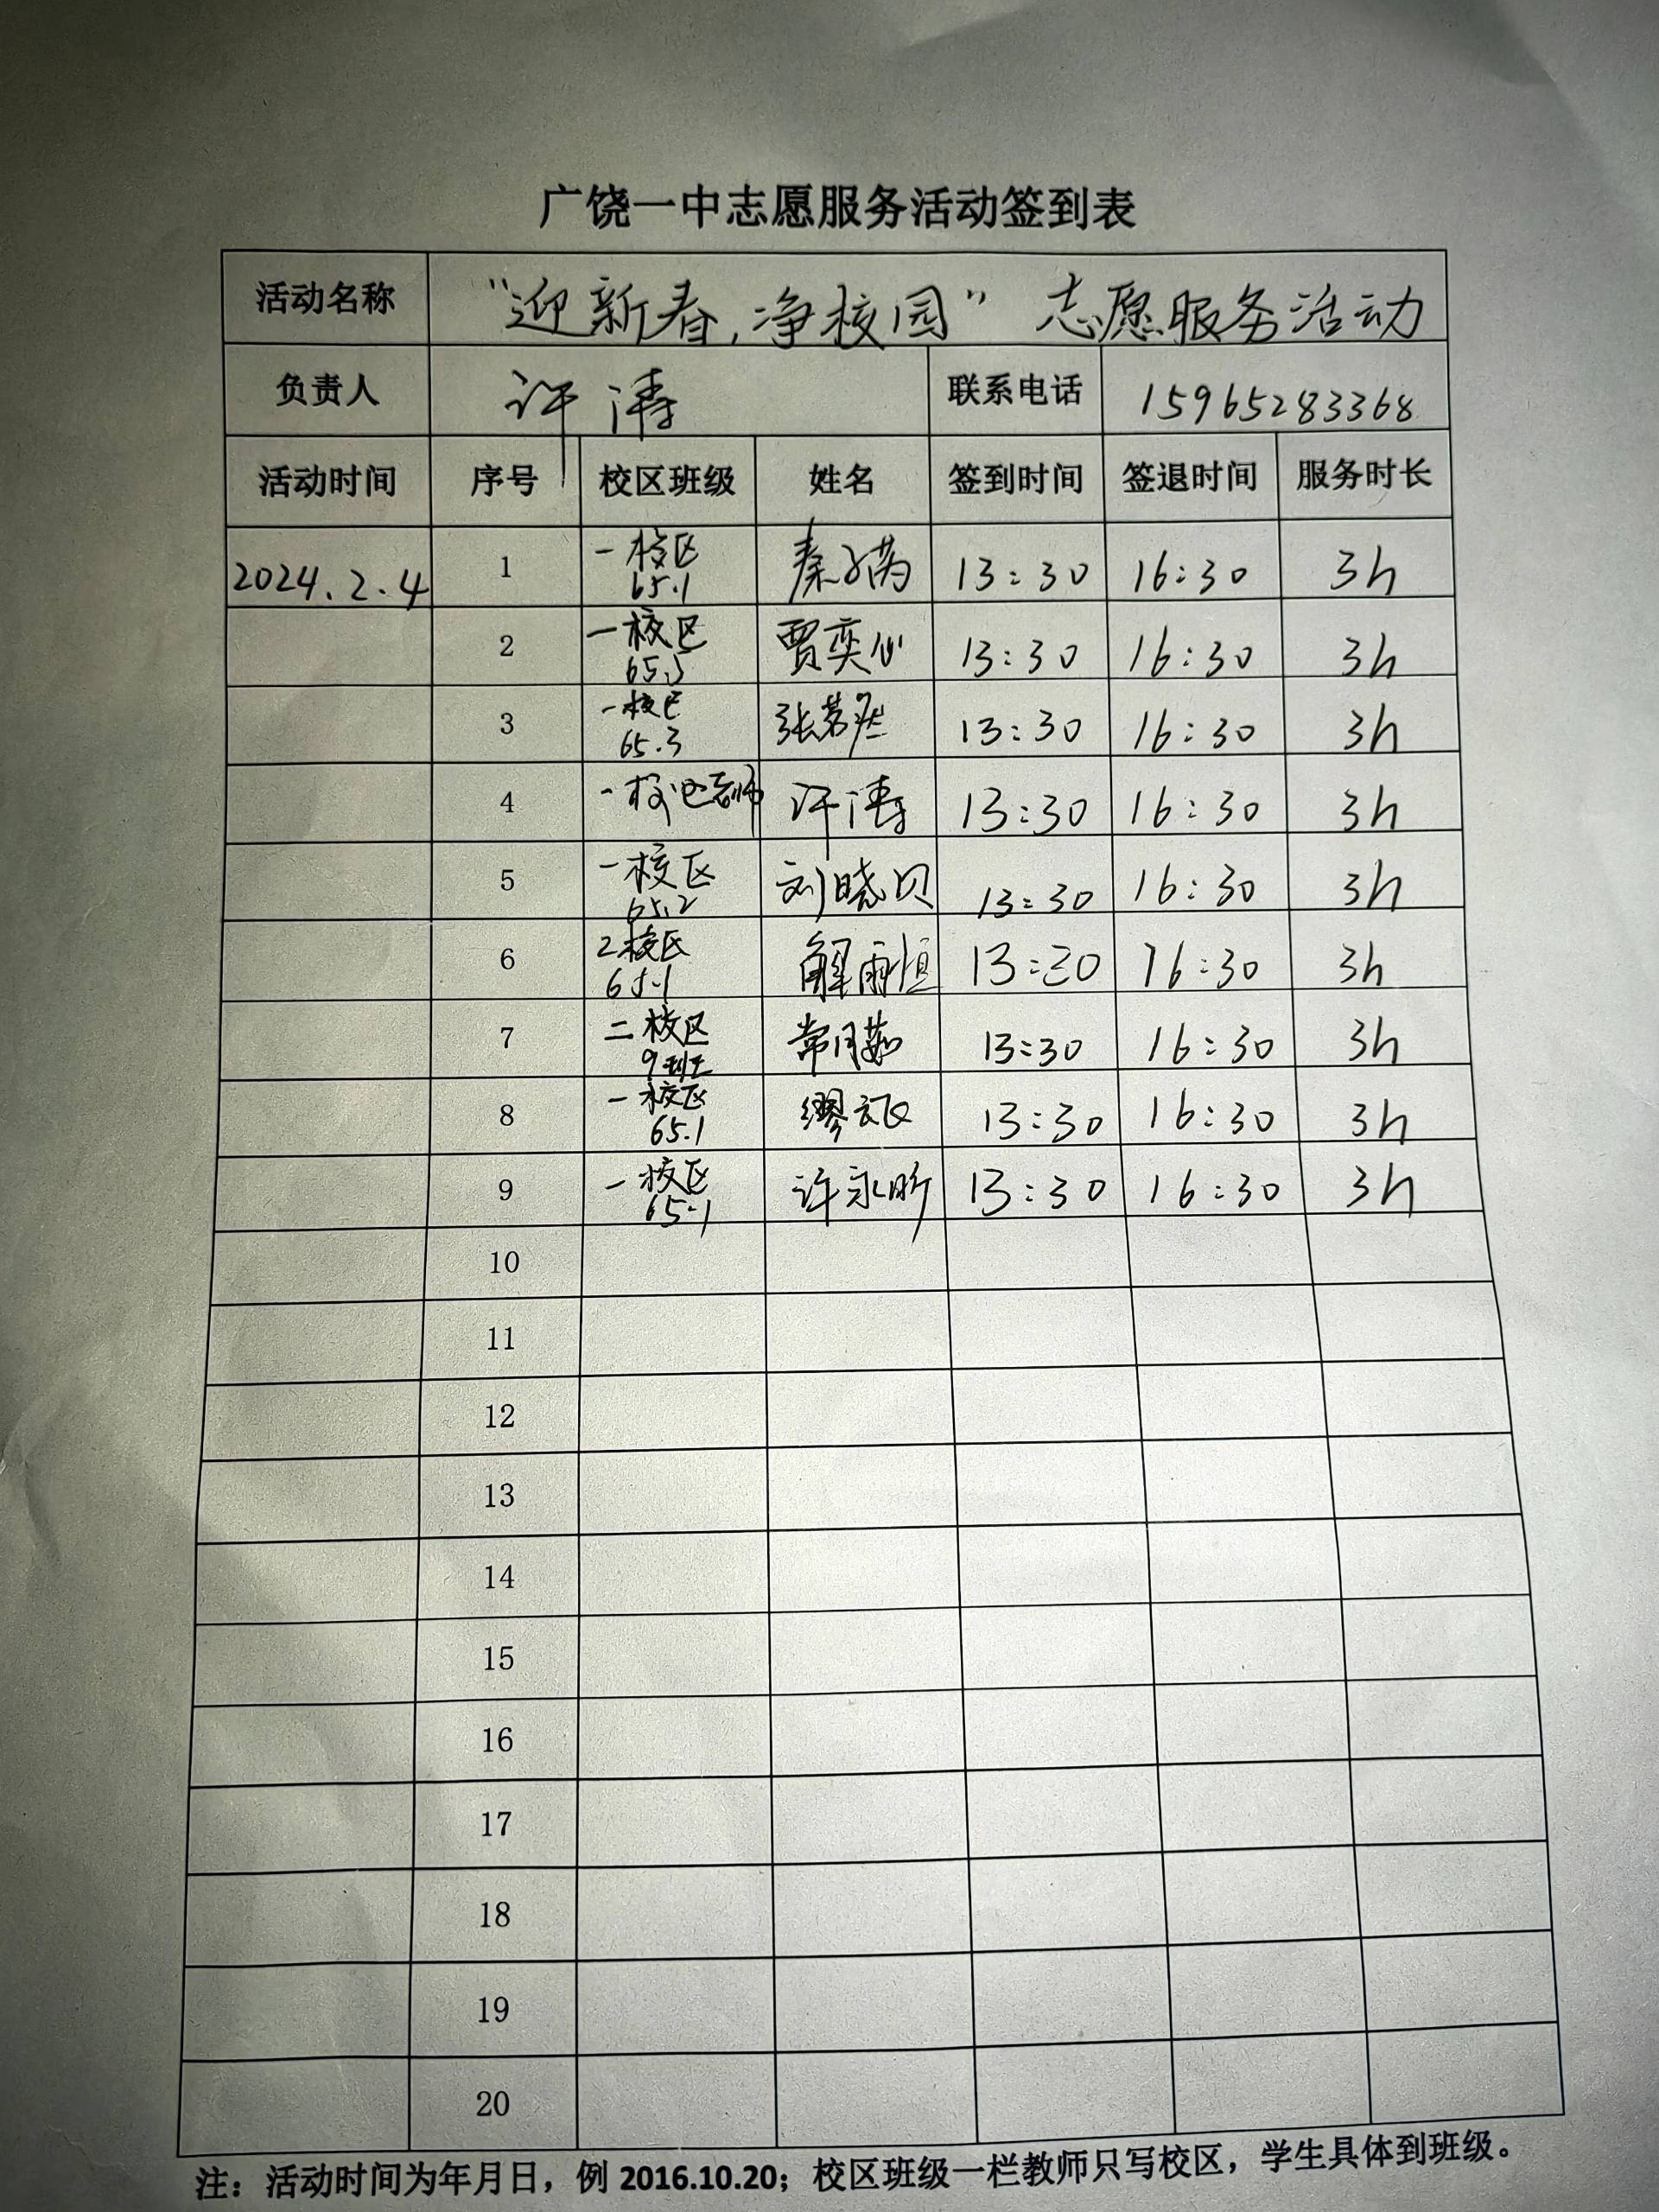 广饶一中志愿服务活动签到表
活动名称 “迎新春,净校园” 志愿服务活动
负责人 许涛 联系电话 15965283368
活动时间 序号 校区班级 姓名 签到时间 签退时间 服务时长
2024.2.4 1 一校区 65.1 秦 13:30 16:30 3h
2 一校区 65.5 贾奕心 13:30 16:30 3h
3 一校区 65.3 张茗 13:30 16:30 3h
4 一校区老师 许涛 13:30 16:30 3h
5 一校区 65.2 刘晓贝 13:30 16:30 3h
6 2校区 65.1 解雨恒 13:30 16:30 3h
7 二校区 9班 常月茹 13:30 16:30 3h
8 一校区 65.1 缪 13:30 16:30 3h
9 一校区 65.1 许永昕 13:30 16:30 3h
10
11
12
13
14
15
16
17
18
19
20
注：活动时间为年月日，例 2016.10.20；校区班级一栏教师只写校区，学生具体到班级。